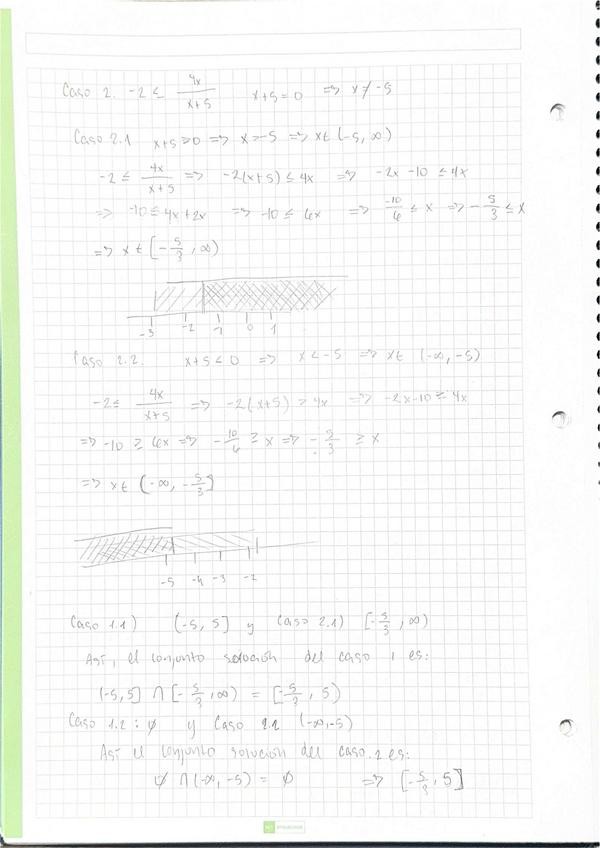 Caso 2. -2 ≤ 4x/(x+5) x+5=0 => x≠-5
Caso 2.1 x+5>0 => x>-5 => x∈(-5, ∞)
-2 ≤ 4x/(x+5) => -2(x+5) ≤ 4x => -2x-10 ≤ 4x
=> -10 ≤ 4x+2x => -10 ≤ 6x => -10/6 ≤ x => -5/3 ≤ x
=> x∈[-5/3, ∞)
-3 -2 -1 0 1
Caso 2.2. x+5<0 => x<-5 => x∈(-∞, -5)
-2 ≤ 4x/(x+5) => -2(x+5) ≥ 4x => -2x-10 ≥ 4x
=> -10 ≥ 6x => -10/6 ≥ x => -5/3 ≥ x
=> x∈(-∞, -5/3]
-5 -4 -3 -2
Caso 1.1) (-5, 5] y Caso 2.1) [-5/3, ∞)
Así, el conjunto solución del caso 1 es:
(-5,5] ∩ [-5/3, ∞) = [-5/3, 5)
Caso 1.2: ∅ y Caso 2.2 (-∞,-5)
Así el conjunto solución del caso.2 es:
∅ ∩ (-∞, -5) = ∅ => [-5/3, 5]